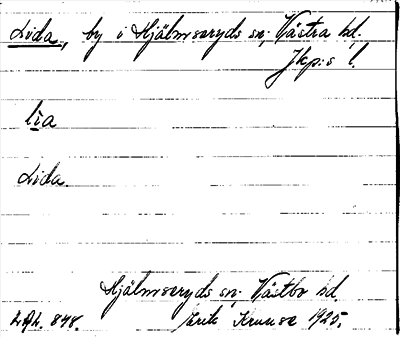 Lida, by i Hjälmseryds sn; Västra hd.
Jkp:s l.
li̲a
Lida.
Hjälmseryds sn; Västbo hd.
L.A.L. 848. Erik Kruuse 1925.